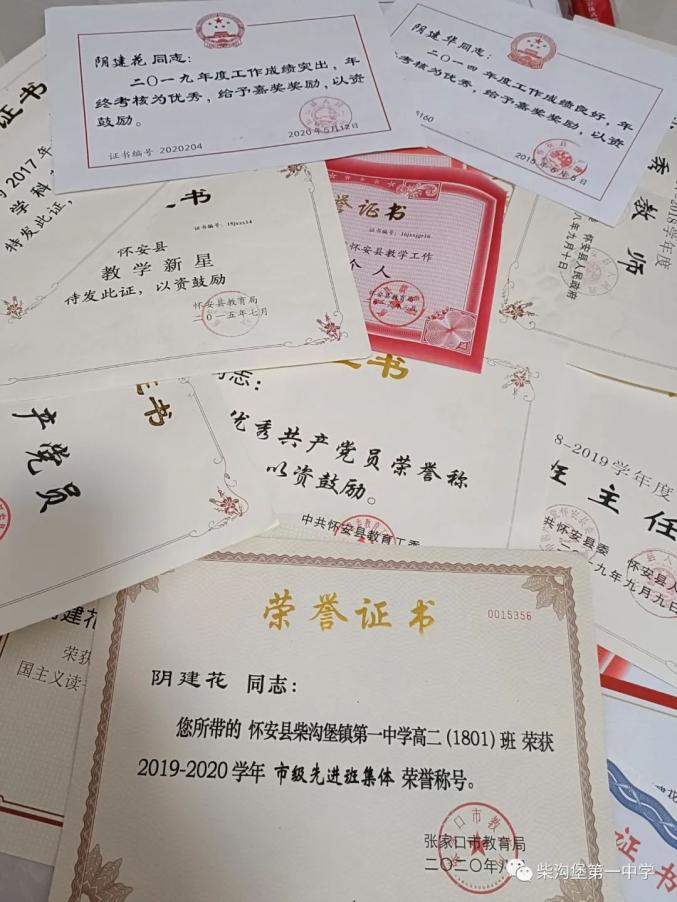 阴建花 同志：
二〇一九年度工作成绩突出，年
终考核为优秀，给予嘉奖奖励，以资
鼓励。
2020年5月12日
证书编号 2020204
阴建华同志：
二〇一四 年度工作成绩良好，年
考核为优秀，给予嘉奖奖励，以资
160
证书
2017年
学科
特发此证，
证书编号：15jxxx14
怀安县
教学新星
特发此证，以资鼓励
怀安县教育局
二〇一五年七月
誉证书
怀安县教学工作
个人
怀安县教育局
秀教师
2018学年度
怀安县人民政府
八年九月十日
产党员
证书
同志：
优秀共产党员荣誉称
以资鼓励。
中共怀安县教育工委
8-2019学年度
班主任
共怀安县委
怀安县人
二〇一九年九月九日
建花
荣获
国主义读
荣誉证书
0015356
阴建花 同志：
您所带的 怀安县柴沟堡镇第一中学高二(1801)班 荣获
2019-2020学年 市级先进班集体 荣誉称号。
张家口市教育局
二〇二〇年八
证书
柴沟堡第一中学